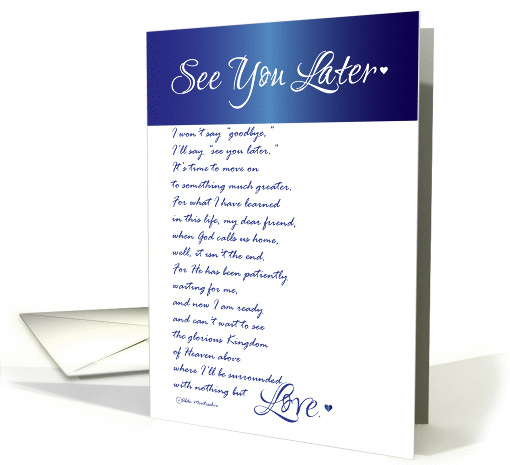 See You Later
I won't say "goodbye,"
I'll say "see you later."
It's time to move on
to something much greater.
For what I have learned
in this life, my dear friend,
when God calls us home,
well, it isn't the end.
For He has been patiently
waiting for me,
and now I am ready
and can't wait to see
the glorious Kingdom
of Heaven above
where I'll be surrounded
with nothing but Love.